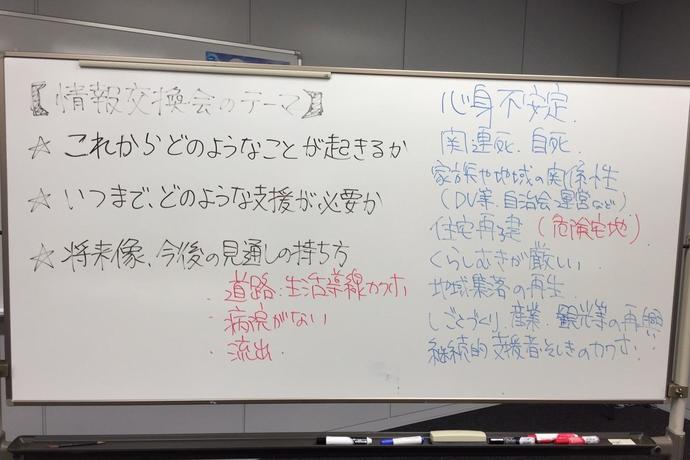 【情報交換会のテーマ】
☆ これからどのようなことが起きるか
☆ いつまで、どのような支援が必要か
☆ 将来像、今後の見通しの持ち方
・道路・生活導線カクホ
・病院がない
・流出.
心身不安定.
関連死. 自死
家族や地域の関係性
(DV等. 自治会運営など)
住宅再建(危険宅地)
くらしむきが厳しい
地域集落の再生.
しごとづくり. 産業. 観光等の再興
継続的支援者・そしきのカクホ.